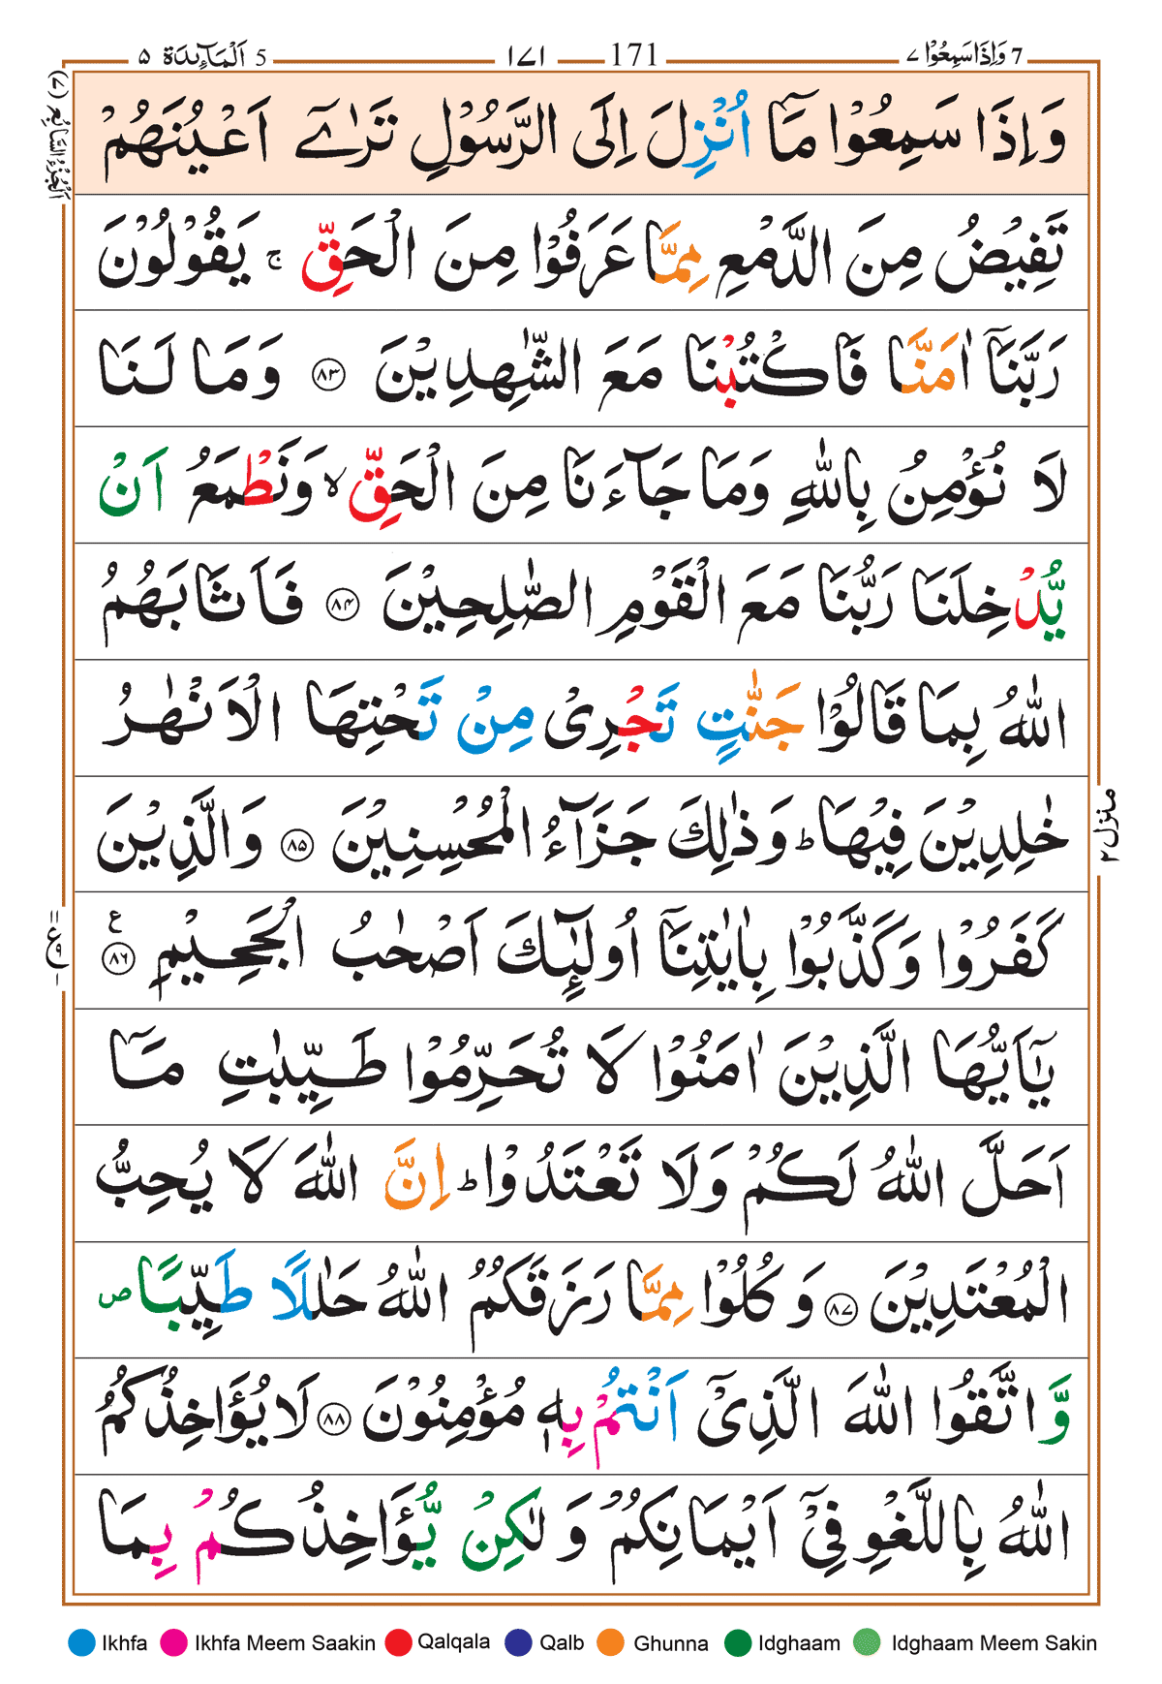 5 اَلْمَآىِٕدَة ۵ ١٧١ 171 7 وَاِذَا سَمِعُوْا ٧
اَلْجُزْءُ السَّابِعُ (٧)
وَاِذَا سَمِعُوْا مَاۤ اُنْزِلَ اِلَى الرَّسُوْلِ تَرٰۤى اَعْيُنَهُمْ
تَفِيْضُ مِنَ الدَّمْعِ مِمَّا عَرَفُوْا مِنَ الْحَقِّ ۚ يَقُوْلُوْنَ
رَبَّنَاۤ اٰمَنَّا فَاكْتُبْنَا مَعَ الشّٰهِدِيْنَ ﴿٨٣﴾ وَمَا لَنَا
لَا نُؤْمِنُ بِاللّٰهِ وَمَا جَآءَنَا مِنَ الْحَقِّ ۙ وَنَطْمَعُ اَنْ
يُّدْخِلَنَا رَبُّنَا مَعَ الْقَوْمِ الصّٰلِحِيْنَ ﴿٨٤﴾ فَاَثَابَهُمُ
اللّٰهُ بِمَا قَالُوْا جَنّٰتٍ تَجْرِىْ مِنْ تَحْتِهَا الْاَنْهٰرُ
خٰلِدِيْنَ فِيْهَا ؕ وَذٰلِكَ جَزَآءُ الْمُحْسِنِيْنَ ﴿٨٥﴾ وَالَّذِيْنَ
كَفَرُوْا وَكَذَّبُوْا بِاٰيٰتِنَاۤ اُولٰٓىِٕكَ اَصْحٰبُ الْجَحِيْمِ ﴿٨٦﴾ ع
يٰۤاَيُّهَا الَّذِيْنَ اٰمَنُوْا لَا تُحَرِّمُوْا طَيِّبٰتِ مَاۤ
اَحَلَّ اللّٰهُ لَكُمْ وَلَا تَعْتَدُوْا ؕ اِنَّ اللّٰهَ لَا يُحِبُّ
الْمُعْتَدِيْنَ ﴿٨٧﴾ وَكُلُوْا مِمَّا رَزَقَكُمُ اللّٰهُ حَلٰلًا طَيِّبًا ص
وَّاتَّقُوا اللّٰهَ الَّذِىْۤ اَنْتُمْ بِهٖ مُؤْمِنُوْنَ ﴿٨٨﴾ لَا يُؤَاخِذُكُمُ
اللّٰهُ بِاللَّغْوِ فِىْۤ اَيْمَانِكُمْ وَلٰكِنْ يُّؤَاخِذُكُمْ بِمَا
منزل ٢
Ikhfa Ikhfa Meem Saakin Qalqala Qalb Ghunna Idghaam Idghaam Meem Sakin